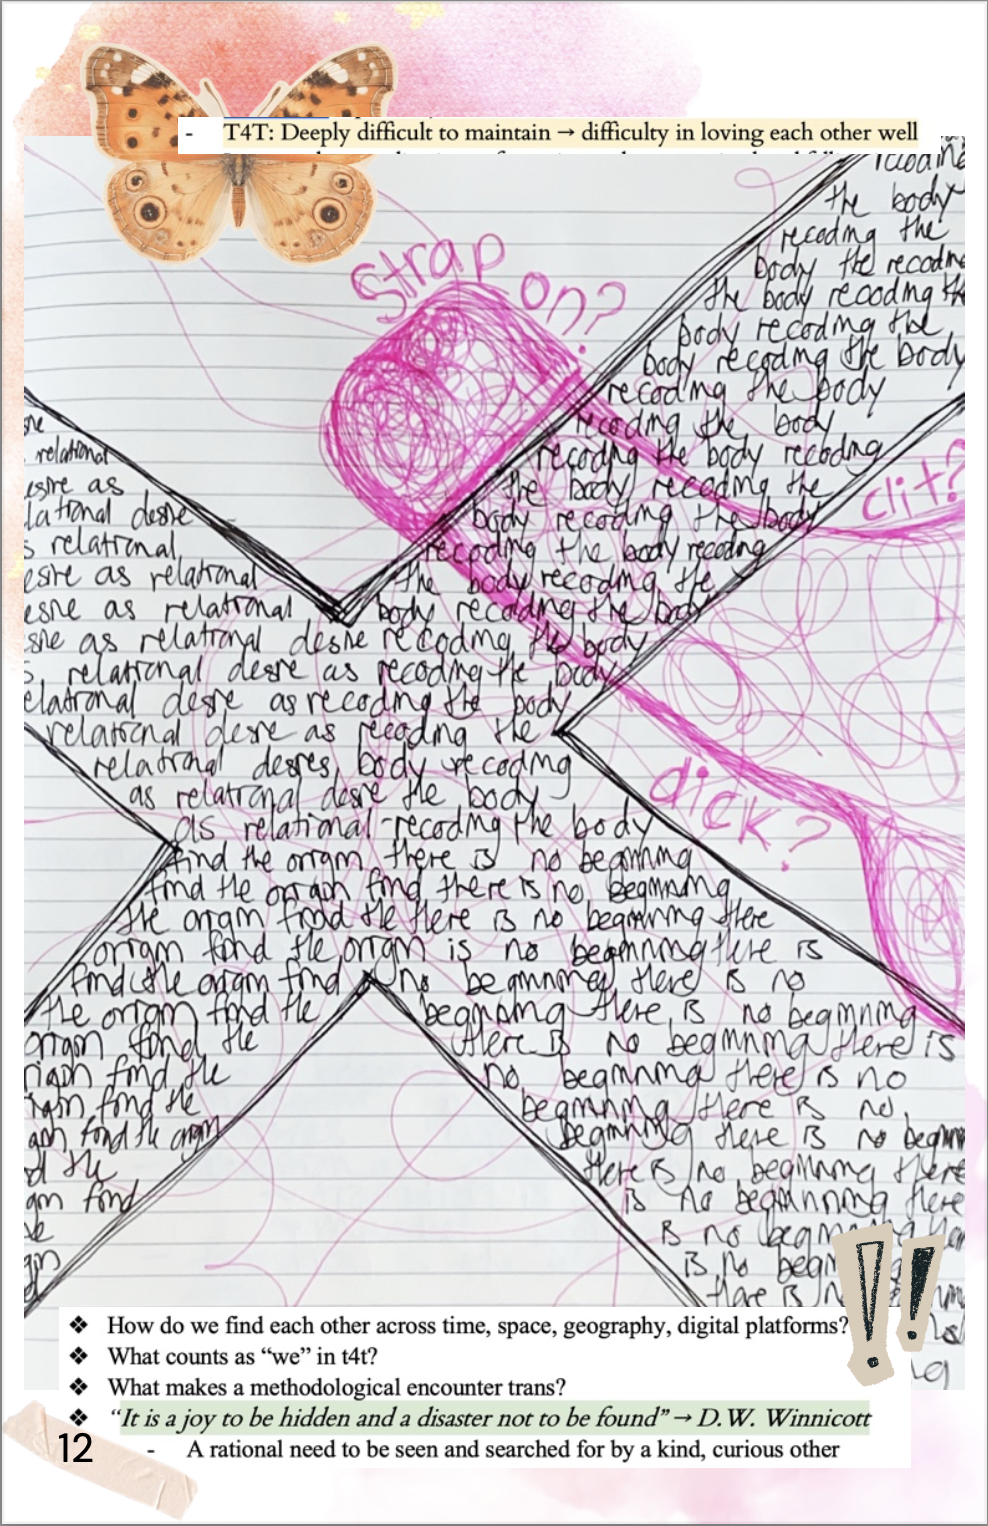 - T4T: Deeply difficult to maintain → difficulty in loving each other well
Strap on?
the body
recoding the
body the recoding
the body recoding the
body recoding the
body recoding the body
recoding the body
recoding the body
recoding the body recoding
the body recoding the
body recoding the body
recoding the body recoding
the body recoding the
body recoding the body
clit?
relational
desire as
relational desire
relational
desire as relational
desire as relational
desire as relational desire recoding the body
relational desire as recoding the body
relational desire as recoding the body
relational desire as recoding the
relational desires, body recoding
as relational desire the body
as relational recoding the body
dick?
find the origin there is no beginning
find the origin find there is no beginning
the origin find the there is no beginning there
origin find the origin is no beginning there is
find the origin find no beginning there is no
the origin find the beginning there is no beginning
origin find the there is no beginning there is
origin find the no beginning there is no
origin find the beginning there is no
origin find the origin beginning there is no beginning
the there is no beginning there
origin find is no beginning there
is no beginning
is no
there is
❖ How do we find each other across time, space, geography, digital platforms?
❖ What counts as “we” in t4t?
❖ What makes a methodological encounter trans?
❖ “It is a joy to be hidden and a disaster not to be found” → D.W. Winnicott
- A rational need to be seen and searched for by a kind, curious other
12
!!